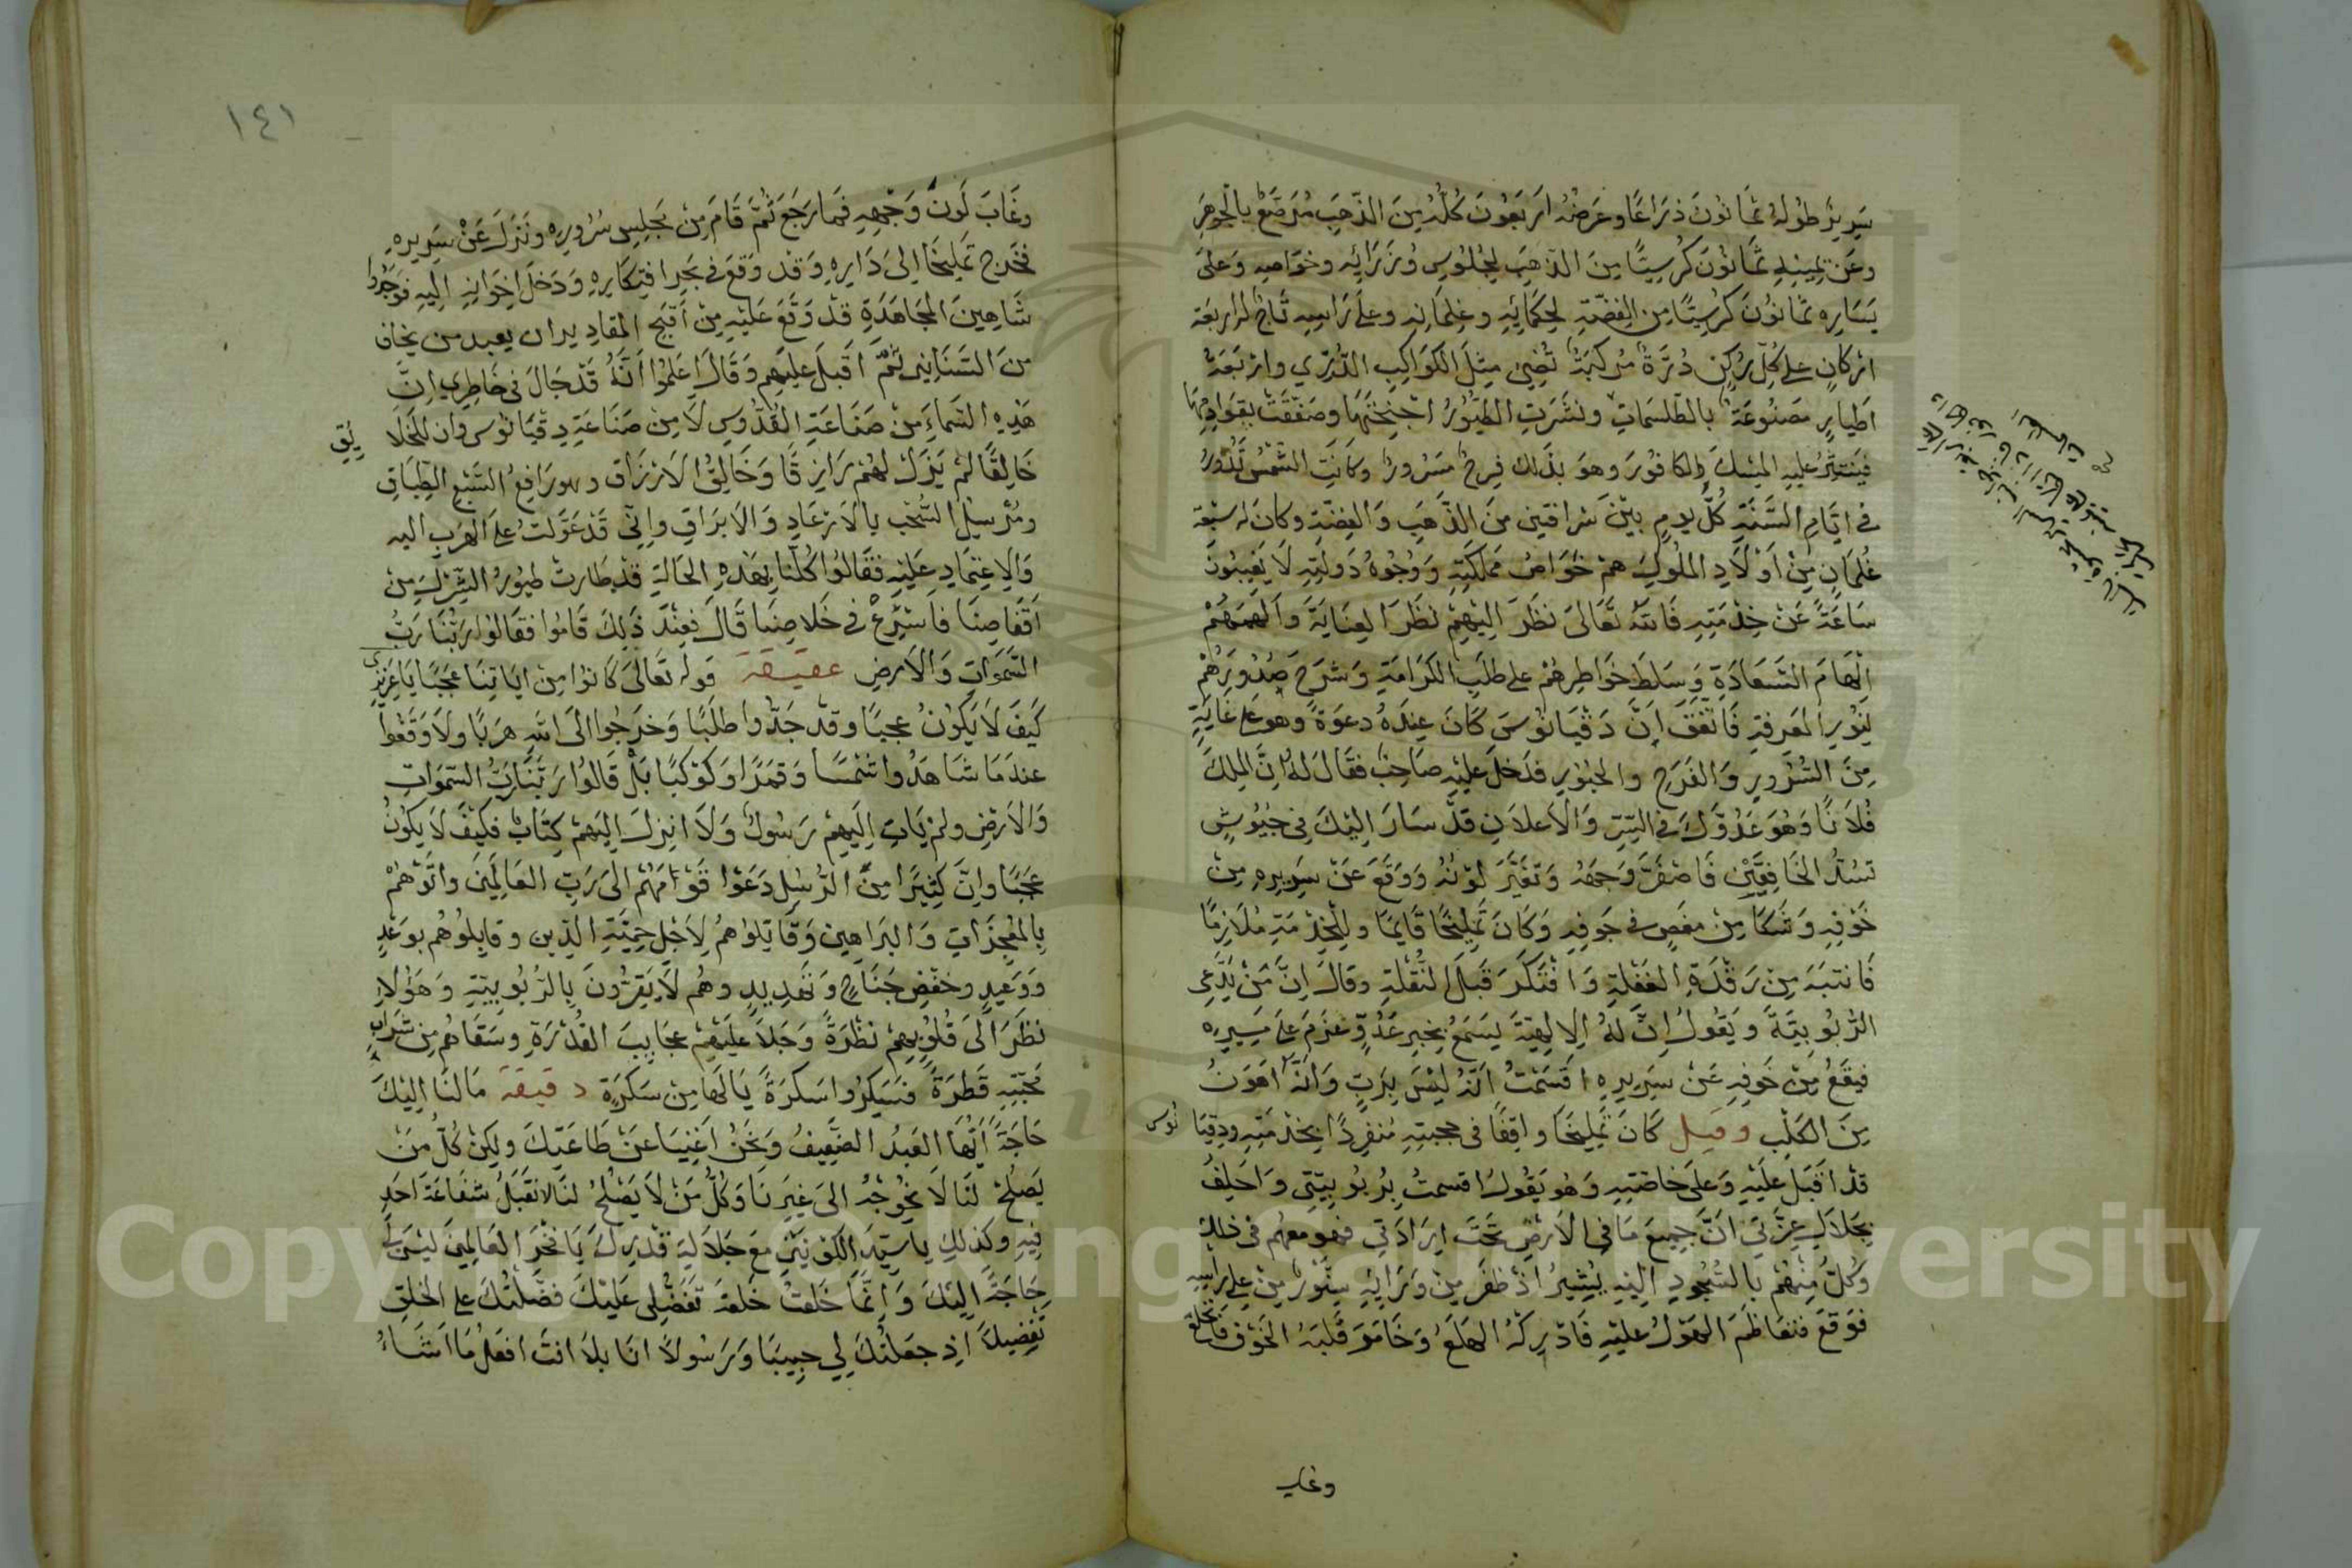 سَرِيرٌ طُولُهُ ثَمَانُونَ ذِرَاعًا وَعَرْضُهُ اَرْبَعُونَ كُلُّهُ مِنَ الذَّهَبِ مُرَصَّعٌ بِالْجَوْهَرِ
وَعَنْ يَمِينِهِ ثَمَانُونَ كُرْسِيًّا مِنَ الذَّهَبِ لِجُلُوسِ وُزَرَائِهِ وَخَوَاصِهِ وَعَلَى
يَسَارِهِ ثَمَانُونَ كُرْسِيًّا مِنَ الْفِضَّةِ لِحُكَمَائِهِ وَغِلْمَانِهِ وَعَلَى رَاسِهِ تَاجٌ لَهُ اربَعَة
ارْكَانٍ عَلَى كُلِّ رُكْنٍ دُرَّةٌ مُرَكَّبَةٌ تُضِيُ مِثْلَ الْكَوَاكِبِ الدُّرِّي وَارْبَعَةُ
اَطْيَارٍ مَصْنُوعَةٌ بِالطِّلَسْمَاتِ وَنَشَرَتِ الطُّيُورُ اَجْنِحَتَهَا وَصَفَّقَتْ بِقَوَادِمِهَا
فَيَنْتَثِرُ عَلَيْهِ الْمِسْكُ وَالكَافُورُ وَهوَ بِذَلِكَ فَرِحٌ مَسْرُورٌ وَكَانَتِ الشَّمْسُ تَدُورُ
فِي اَيَّامِ السَّنَةِ كُلَّ يومٍ بَيْنَ شراقتين مِنَ الذَّهَبِ وَالْفِضَّةِ وَكَانَ لَهُ سَبْعَة
غُلْمَانٍ مِنْ اَوْلَادِ الْمُلُوكِ هُمْ خَوَاصُ مَمْلَكَتِهِ وَوُجُوهُ دَوْلَتِهِ لَا يَغِيبُونَ
سَاعَةً عَنْ خِدْمَتِهِ فَاللَّهُ تَعَالَى نَظَرَ اِلَيْهِمْ نَظَرَ العِنَايَةِ وَاَلْهَمَهُمْ
اِلْهَامَ السَّعَادَةِ وَسَلَطَ خَوَاطِرَهُمْ عَلى طَلَبِ الْكَرَامَةِ وَشَرَحَ صُدُورَهُمْ
لِنُورِ الْمَعْرِفَةِ فَاتَّفَقَ اَنَّ دَقْيَانُوسَ كَانَ عِنْدَهُ دعوَةٌ وَهُوَ عَلَى غَايَةٍ
مِنَ السُّرُورِ وَالْفَرَحِ وَالحُبُورِ فَدَخَلَ عَلَيْهِ صَاحِبٌ فَقَالَ لَهُ اِنَّ الْمَلِكَ
فُلَانًا وَهُوَ عَدُوُّكَ فِي السِّرِّ وَالْاِعْلَانِ قَدْ سَارَ اِلَيْكَ فِي جُيُوشٍ
تَسُدُّ الْخَافِقَيْنِ فَاصْفَرَّ وَجْهُهُ وَتَغَيَّرَ لَوْنُهُ وَوَقَعَ عَنْ سَرِيرِهِ مِنْ
خَوْفِهِ وَشَكَا مِنْ مَغَصٍ فِي جَوفِهِ وَكَانَ تَمْلِيخَا قَايِمًا وَلِلْخِدْمَةِ مُلَازِمًا
فَانْتَبَهَ مِنْ رَقْدَةِ الْغَفْلَةِ وَافْتَكَرَ قَبلَ النُّقْلَةِ وَقَالَ اِنَّ مَنْ يَدَّعِي
الرُّبُوبِيَّةَ وَيَقُولُ اِنَّ لَهُ الِالهِيَّةَ يَسمَعُ بِخَبَرِ عَدُوٍّ عَزَمَ عَلَى مَسِيرِهِ
فَيَقَعُ مِنْ خَوفِهِ عَنْ سَرِيرِهِ اَقْسَمْتُ اَنَّهُ لَيْسَ بِرَبٍّ وَاَنَّهُ اَهْوَنُ
مِنَ الْكَلْبِ وقيل كَانَ تَمْلِيخَا وَاقِفًا فِي حجبتِهِ مُنْفَرِدًا بِخِدْمَتِهِ وَدِقْيَا نوس
قَدْ اَقْبَلَ عَلَيْهِ وَعَلَى خَاصَّتِهِ وَهُوَ يَقُولُ اقسمتُ بِرُبُوبِيَّتِي وَاَحْلِفُ
بِجَلَالِ عِزَّتِي اَنَّ جَمِيعَ مَا فِي الاَرْضِ تَحْتَ اِرَادَتِي فَهُوَ مَعهُم فِي ذلِكَ
وَكُلٌّ مِنْهُمْ بِالسُّجُودِ اِلَيْهِ يُشِيرُ اِذْ ظَفَرَ مِنْ وَرَايِهِ سِنَّوْرٌ مِنْ عَلى رَاسِهِ
فَوَقَعَ فَتَعَاظَمَ الهَوْلُ عَلَيْهِ فَادْرَكَهُ الهَلَعُ وَخَامَرَ قَلْبَهُ الْخَوْف
وغاب
١٤١
وَغَابَ لَونُ وَجْهِهِ فَمَا رَجَعَ ثُمَّ قَامَ مِنْ مَجْلِسِ سُرُورِهِ وَنَزَلَ عَنْ سَرِيرِهِ
فَخَرَجَ تَمْلِيخَا اِلَى دَارِهِ وَقَدْ وَقَعَ فِي بَحْرِ افْتِكَارِهِ وَدَخَلَ اِخْوَانِهِ اِلَيْهِ فَوَجَدُوا
شَاهِينَ الْمُجَاهَدَةِ قَدْ وَقَعَ عَلَيْهِ مِنْ اَقْبَحِ المقادير ان يعبد من يخاف
مِنَ السَّنَانِير ثُمَّ اَقْبَلَ عَلَيْهِمْ وَقَالَ اعْلَمُوا اَنَّهُ قَدْ جَالَ فِي خَاطِرِي اِنَّ
هَذِهِ السَّمَاءَ مِنْ صَنَاعَةِ الْقُدُّوسِ لَا مِنْ صَنَاعَةِ دِقْيَانُوس وَان لِلْخَلَا يِقِ
خَالِقًا لَمْ يَزَلْ لَهُمْ رَازِقًا وَخَالِقُ الْاَرْزَاقِ وَهو رَافِعُ السَّبْعِ الطِّبَاقِ
وَمُرْسِلُ السُّحْب بِالاَرْعَادِ وَالاَبْرَاقِ وَاِنِّي قَدْ عَوَّلتُ عَلَى الْهَرَبِ اليه
وَالِاعْتِمَادِ عَلَيْهِ فَقَالُوا كُلُّنَا بِهَذِهِ الْحَالَةِ قَدْ طَارَتْ طُيُورُ الشِّرْكِ مِنْ
اَقْفَاصِنَا فَاَسْرِعْ فِي خَلَاصِنَا قَالَ فَعِنْدَ ذَلِكَ قَامُوا فَقَالُوا رَبُّنَا رَبُّ
السَّمَوَاتِ وَالْاَرْضِ عقيقة قَولُه تَعَالَى كَانُوا مِنْ ايَاتِنَا عَجَبًا يَا عَزِيزِي
كَيْفَ لَا يَكُونُ عجيبًا وَقَدْ جَدُّوا طَلَبًا وَخَرَجُوا اِلَى اللهِ هَرَبًا وَلَا وَقَعُوا
عِنْدَمَا شَاهَدُوا شَمْسًا وَقَمَرًا وَكَوْكَبًا بَلْ قَالُوا رَبُّنَا رَبُّ السَّمَوَاتِ
وَالْاَرْضِ وَلَمْ يَاتِ اِلَيْهِمْ رَسُولٌ وَلَا اُنْزِلَ اِلَيْهِمْ كِتَابٌ فَكَيْفَ لَا يَكُونُ
عَجَبًا وَاِنَّ كَثِيرًا مِنَ الرُّسُلِ دَعَوْا قَوْمَهُمْ اِلَى رَبِّ الْعَالَمِينَ وَاَتَوْهُمْ
بِالْمُعْجِزَاتِ وَالْبَرَاهِينِ وَقَاتَلُوهُمْ لِاَجْلِ حَمِيَّةِ الدِّينِ وَقَابَلُوهُم بوَعْدٍ
وَوَعِيدٍ وَخَفْضِ جَنَاحٍ وَتَهْدِيدٍ وَهُمْ لَا يَقِرُّونَ بِالرُّبُوبِيَّةِ وَهَؤُلَاءِ
نَظَرَ اِلَى قُلُوبِهِمْ نَظْرَةً وَجَلَا عَلَيْهِمْ عَجَايِبَ الْقُدْرَةِ وَسَقَاهُمْ مِنْ شَرَابِ
مَحَبَّتِهِ قَطْرَةً فَسَكِرُوا سَكْرَةً يَا لَهَا مِنْ سَكْرَةٍ دقيقة مَا لَنَا اِلَيْكَ
حَاجَةٌ اَيُّهَا العَبْدُ الضَّعِيفُ وَنَحْنُ اَغْنِيَا عَنْ طَاعَتِكَ وَلَكِنْ كُلُّ مَنْ
يَصْلُحُ لَنَا لَا نُحْوِجُهُ اِلَى غَيْرِنَا وَكُلُّ مَنْ لَا يَصْلُحُ لَنَا لَا نَقْبَلُ شَفَاعَةَ اَحَدٍ
فِيهِ وَكَذَلِكَ يَا سَيِّدَ الكَوْنَيْنِ مَعَ جَلَالَةِ قَدْرِكَ يَا فَخْرَ الْعَالَمِينَ لَيْسَ لِي
حَاجَةٌ اِلَيْكَ وَاِنَّمَا خَلَعْتُ خَلْعَةَ تَفَضُّلِي عَلَيْكَ فَضَّلْتُكَ عَلَى الْخَلْقِ
تَفْضِيلًا اِذْ جَعَلْتُكَ لِي حَبِيبًا وَرَسُولًا اَنَا بِلَا اَنْتَ اَفعَلُ مَا اَشَاءُ
Copyright © King Saud University